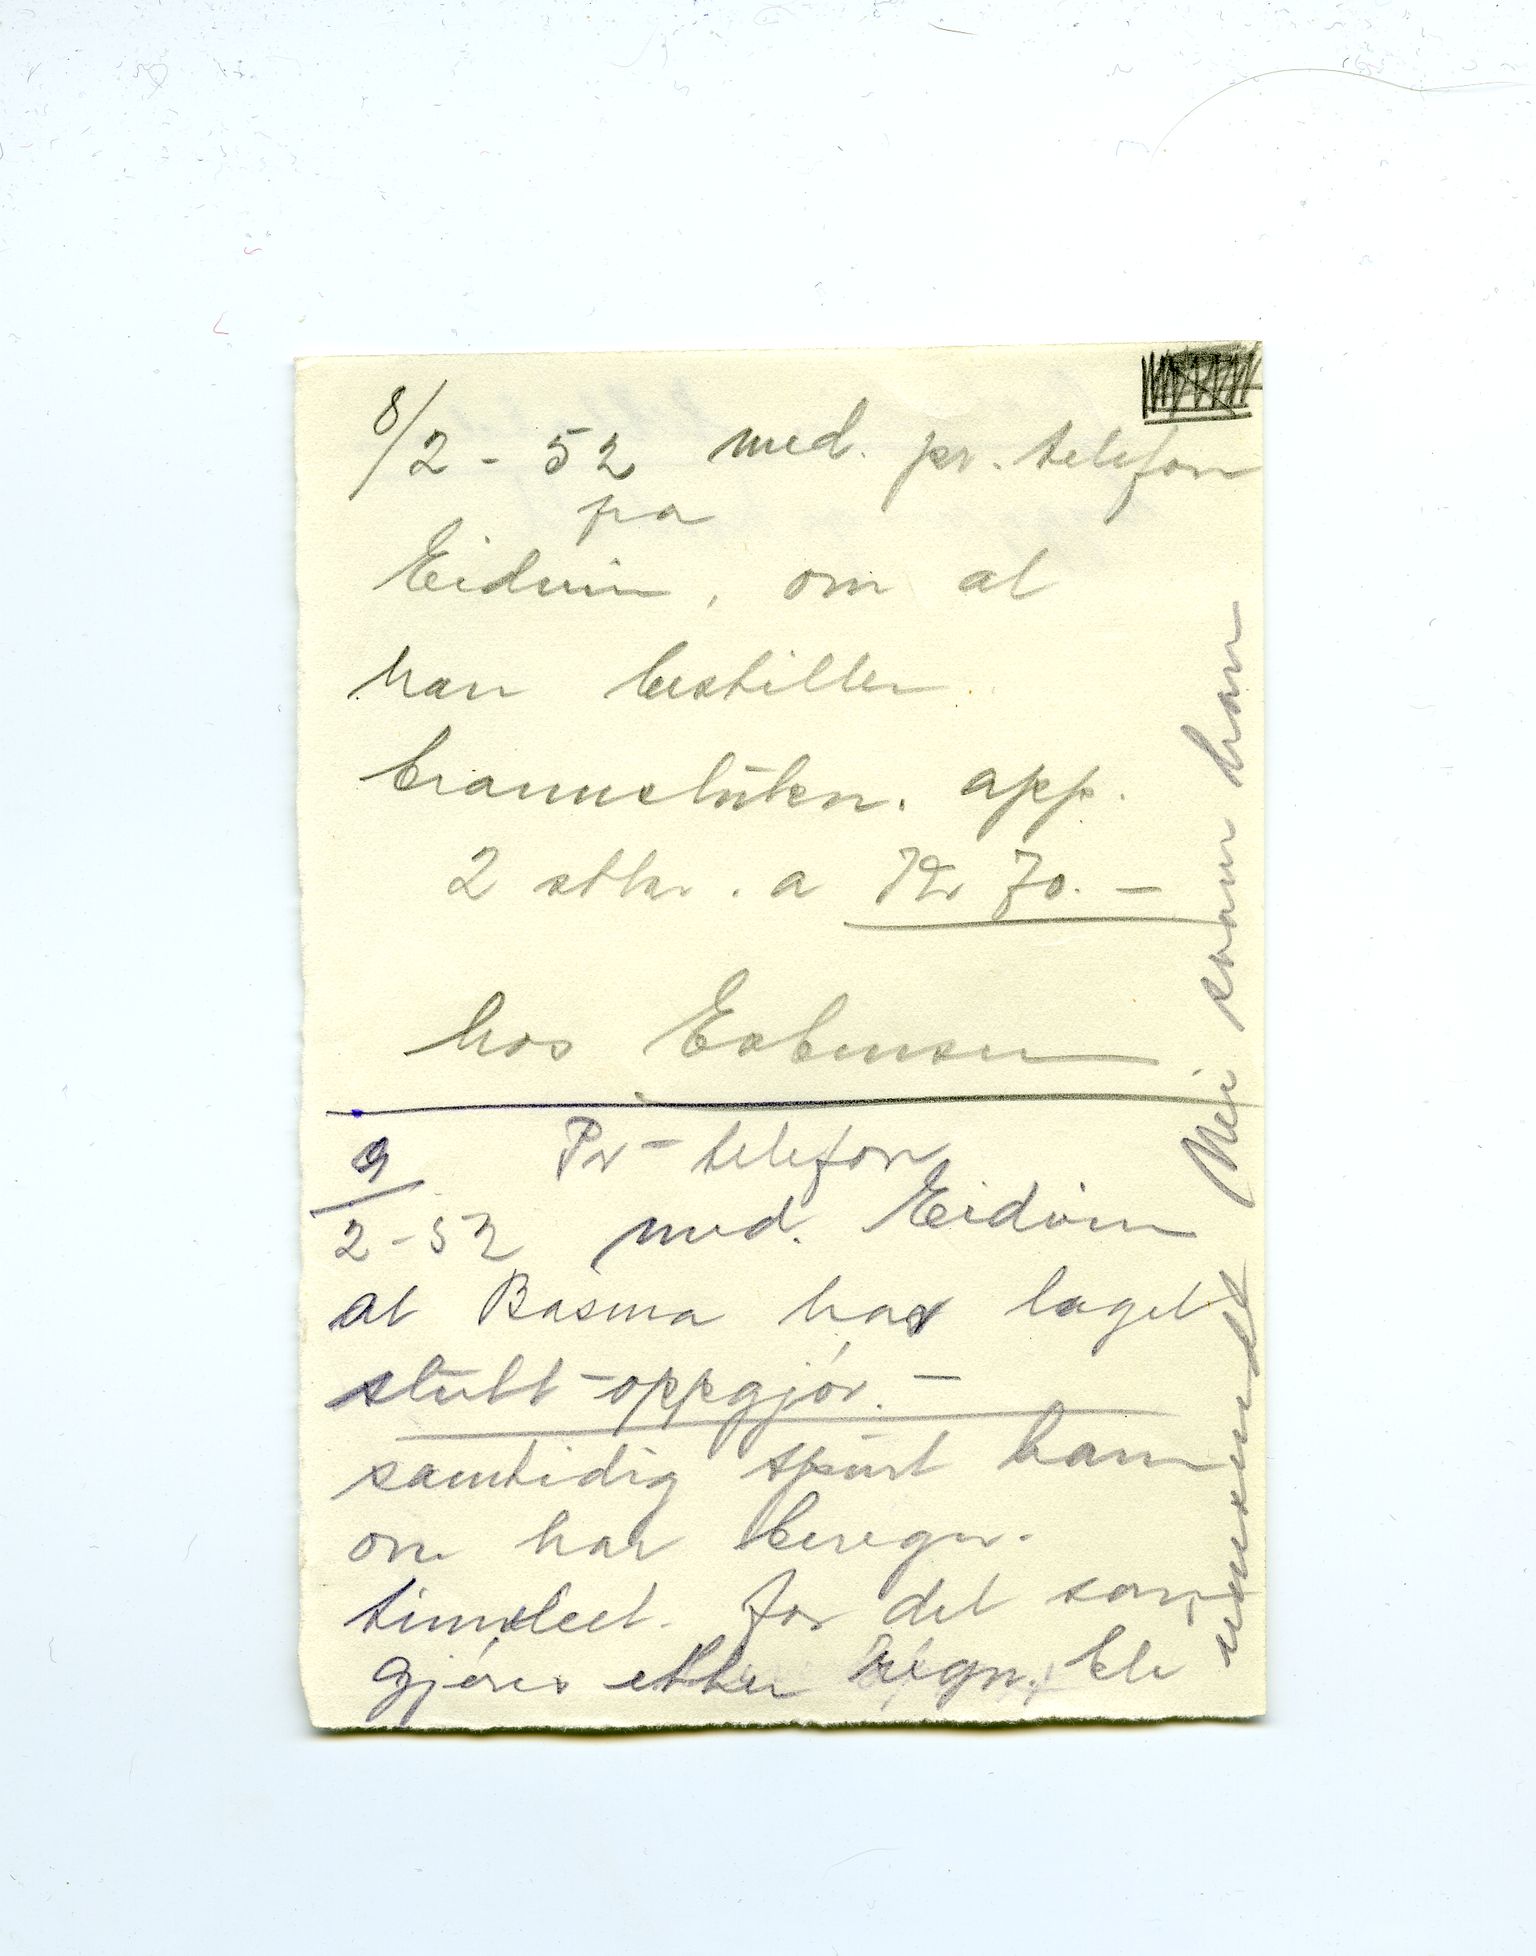 8/2 - 52 med. pr. telefon
fra
Eidvin, om at
han bestiller
brannslukn. app.
2 stkr. a Kr 70. -
hos Esbensen
9/2-52 Pr - telefon
med. Eidvin
at Basma har laget
slutt-oppgjør. -
samtidig spurt ham
om har beregn.
timebet. for det som
gjøres etter regn. ble
Nei svarer han